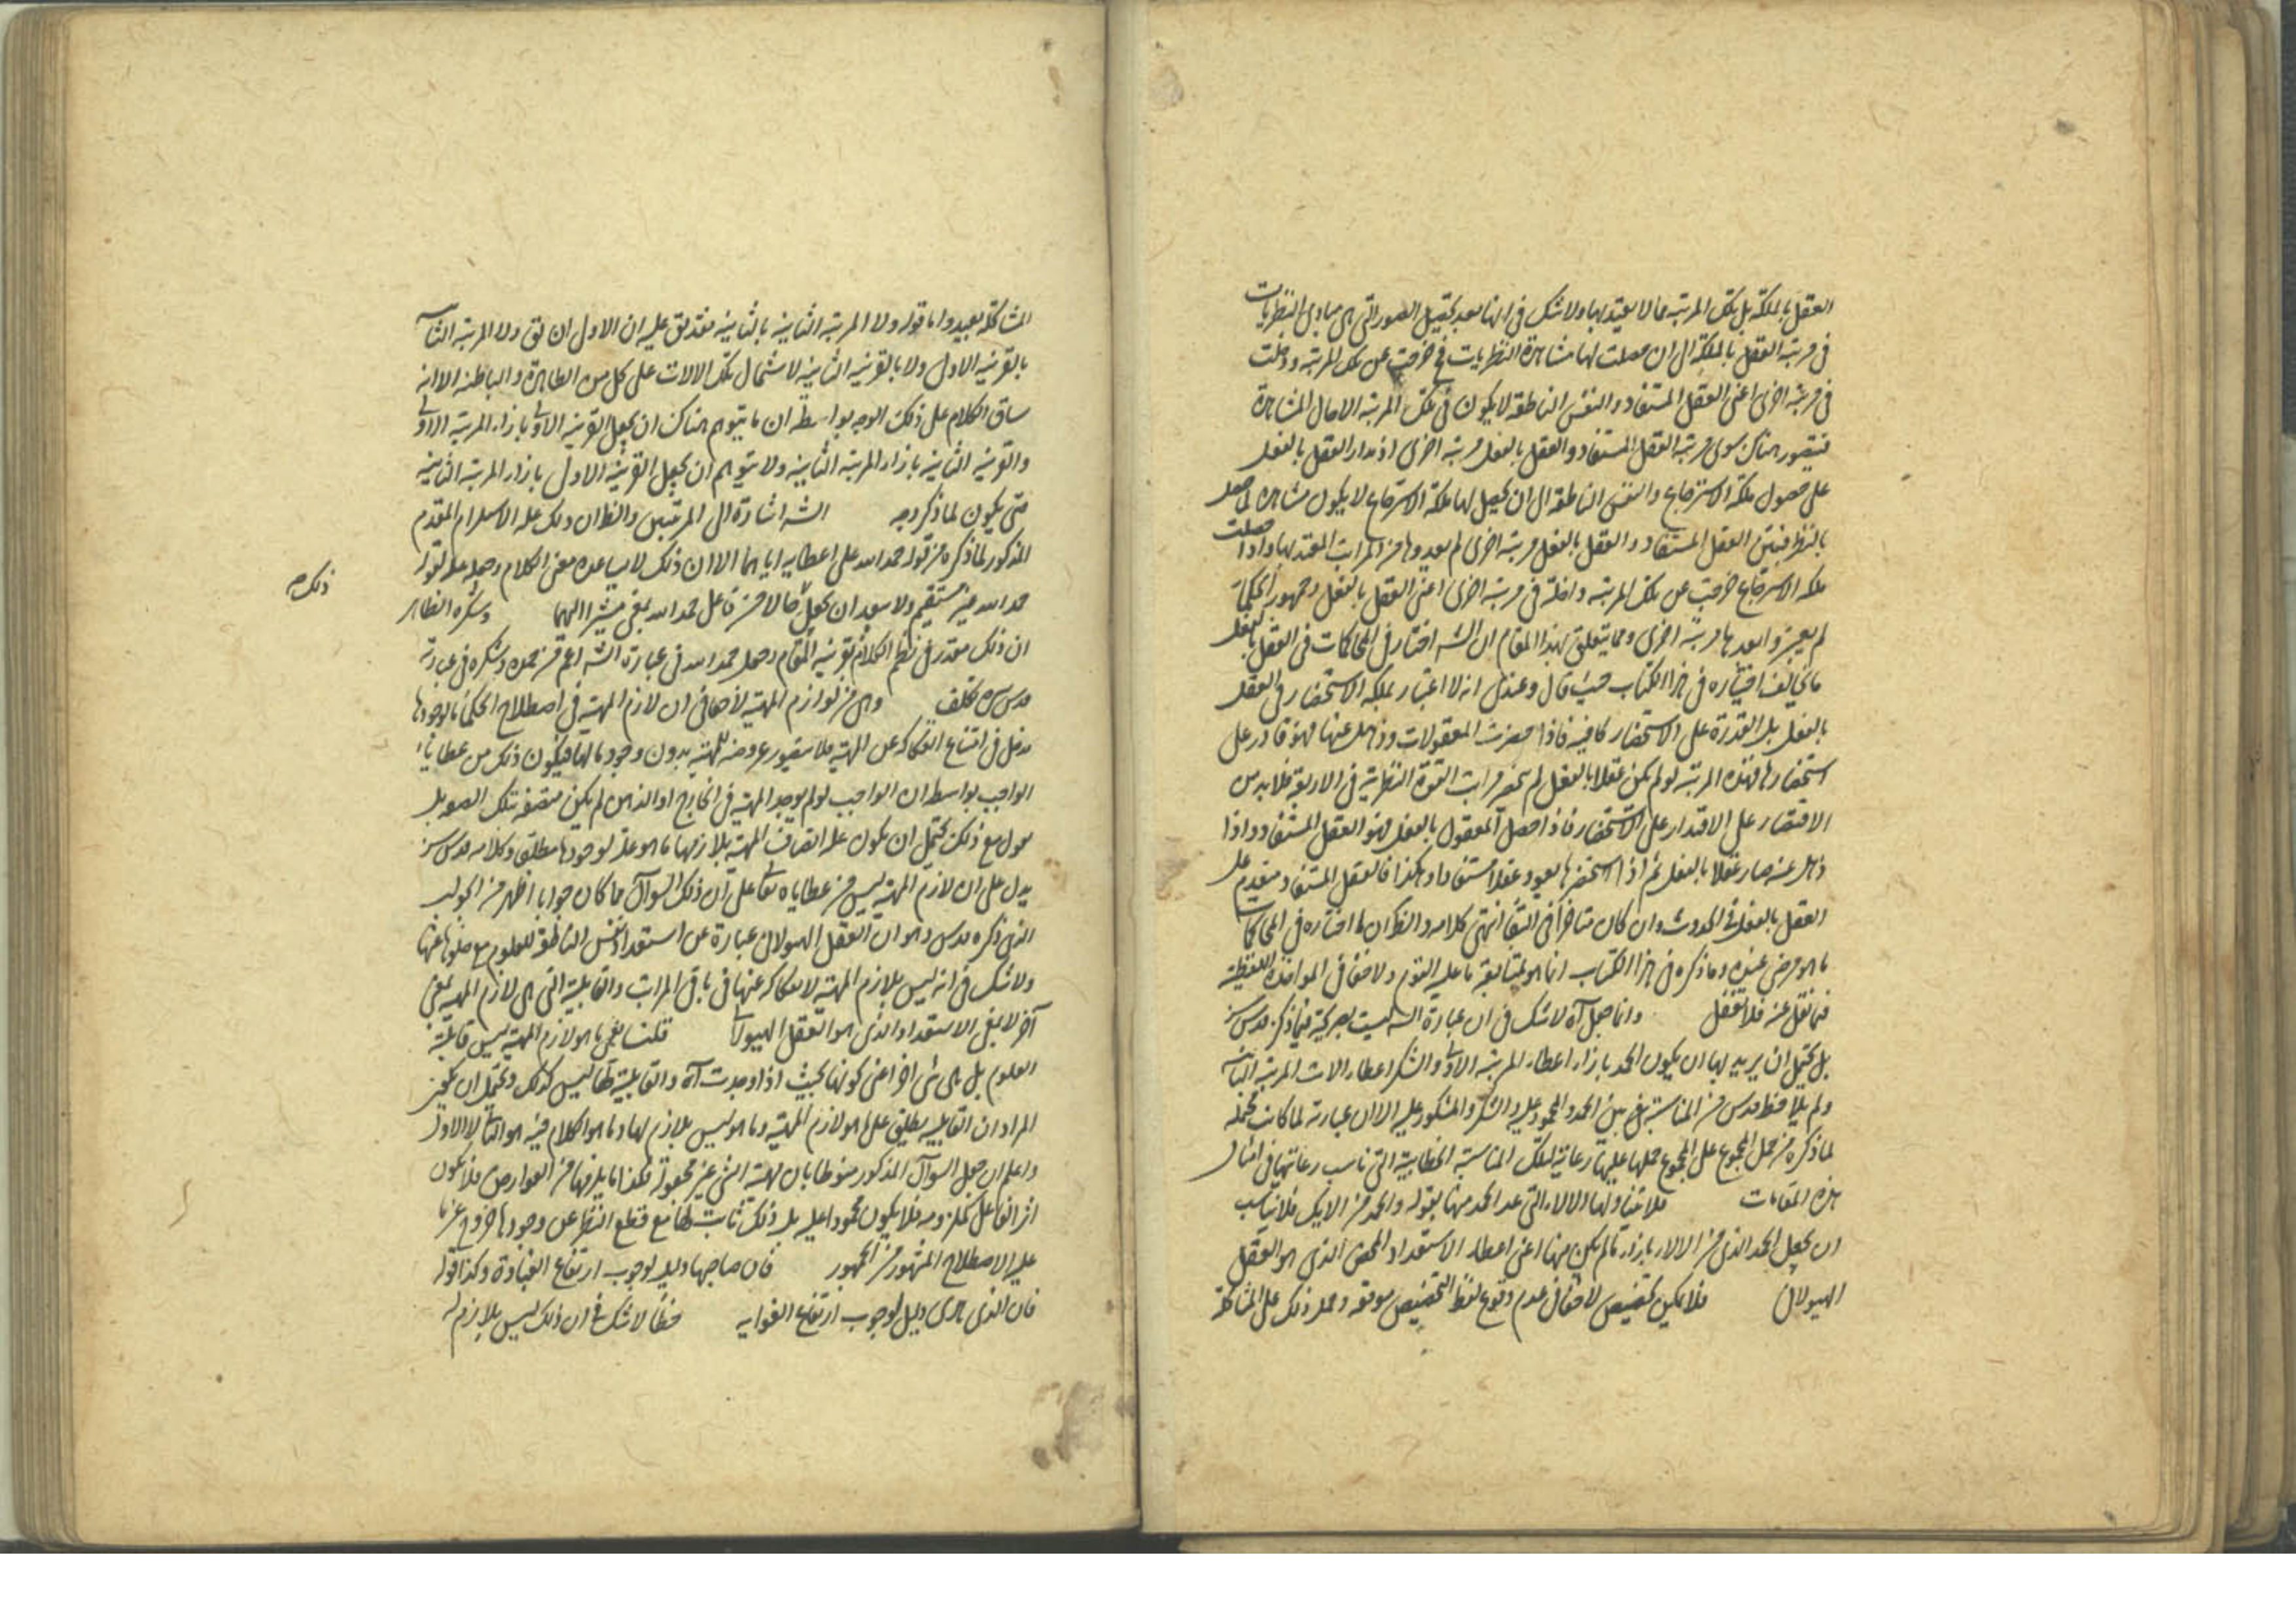 العقل بالملكة بل تلك المرتبة مما لا يعتد بها ولا شك فى انها بعد تحصيل الصور التى هى مبادى النظريات
فى مرتبة العقل بالملكة الى ان حصلت لها مشاهدة النظريات فح خرجت عن تلك المرتبة ودخلت
فى مرتبة اخرى اعنى العقل المستفاد والنفس الناطقة لا يكون فى تلك المرتبة الا حال المشاهدة
فيتصور هناك سوى مرتبة العقل المستفاد والعقل بالفعل مرتبة اخرى اذ مدار العقل بالفعل
على حصول ملكة الاسترجاع والنفس الناطقة الى ان يحصل لها ملكة الاسترجاع لا يكون مشاهدة لما حصل
بالنظر فبين العقل المستفاد والعقل بالفعل مرتبة اخرى لم يعدوها من المراتب المعتد بها واذا حصلت
ملكة الاسترجاع خرجت عن تلك المرتبة داخلة فى مرتبة اخرى اعنى العقل بالفعل وجمهور الحكماء
لم يعتبروا بعدها مرتبة اخرى ومما يتعلق بهذا المقام ان الشه اختار فى المحاكمات فى العقل بالفعل
ما يخالف اختياره فى هذا الكتاب حيث قال وعندى انه لا اعتبار لملكة الاستحضار فى العقل
بالفعل بل القدرة على الاستحضار كافية فاذا حضرت المعقولات وذهل عنها فهو قادر على
استحضارها فهذه المرتبة لو لم يكن عقلا بالفعل لم ينحصر مراتب القوة النظرية فى الاربعة فلا بد من
الاقتصار على الاقتدار على الاستحضار فاذا حصل المعقول بالفعل فهو العقل المستفاد واذا
ذهل عنه صار عقلا بالفعل ثم اذا استحضرها يعود عقلا مستفادا وهكذا فالعقل المستفاد متقدم على
العقل بالفعل فى الحدوث وان كان متاخرا فى البقاء انتهى كلامه والظ ان ما اختاره فى المحاكمات
ما هو مرضى عنده وما ذكره فى هذا الكتاب انما هو لمتابعة ما عليه القوم ولا خفاء فى المواخذة اللفظية
فيما نقل عنه فلا تغفل وانما جعل آه لا شك فى ان عبارة الشه ليست بصريحة فيما ذكره قدس سره
بل يحتمل ان يريد بها ان يكون الحمد بازاء اعطاء المرتبة الاولى والشكر اعطاء الات المرتبة الثانية
ولم يلاحظ قدس سره المناسبة بين الحمد والمحمود عليه والشكر والمشكور عليه الا ان عبارته لما كانت محتملة
لما ذكره من حمل المجموع على المجموع حملها عليها رعاية لتلك المناسبة الخطابية التى تناسب رعايتها فى امثال
هذه المقامات فلا يتناولها الآلاء التى عد الحمد منها بقوله والحمد من الاليك فلا يناسب
ان يجعل الحمد الذى من الالاء بازاء ما لم يكن منها اعنى اعطاء الاستعداد المحض الذى هو العقل
الهيولانى فلا يمكن تخصيص لا خفاء فى عدم وقوع لفظ التخصيص موقعه وحمل ذلك على المشاكلة
المشاكلة بعيد واما قوله ولا المرتبة الثانية بالثانية فقد يق عليه ان الاولى ان يق ولا المرتبة الثانية
بالقرينة الاولى ولا بالقرينة الثانية لاشتمال تلك الالات على كل من الظاهرة والباطنة الا انه
ساق الكلام على ذلك الوجه بواسطة ان ما يتوهم هناك ان يجعل القرينة الاولى بازاء المرتبة الاولى
والقرينة الثانية بازاء المرتبة الثانية ولا يتوهم ان يجعل القرينة الاولى بازاء المرتبة الثانية
حتى يكون لما ذكر وجه الشه اشارة الى المرتبتين والظ ان ذلك علة الاستلزام المقدم
المذكور لما ذكره من قوله حمد الله على اعطايه اياهما الا ان ذلك لا يساعده معنى الكلام وجعله علة لقوله
حمد الله غير مستقيم ولا يبعد ان يجعل حالا من فاعل حمد الله بمعنى مشيرا اليهما وشكره الظاهر
ذلك
ان ذلك مقدر فى نظم الكلام بقرينة المقام وحمل حمد الله فى عبارة الشه اعم من حمده وشكره فى عبارته
قدس سره تكلف وهى من لوازم المهية لا خفاء فى ان لازم المهية فى اصطلاح الحكماء ما لوجودها
مدخل فى امتناع انفكاكه عن المهية فلا يتصور عروضه للمهية بدون وجود ما لها فيكون ذلك من عطايا
الواجب بواسطة ان الواجب لو لم يوجد المهية فى الخارج او الذهن لم يكن متصفة بتلك الصفة بل
نقول مع ذلك يحتمل ان يكون علة اتصاف المهية بلازمها ما هو علة لوجودها مطلق وكلامه قدس سره
يدل على ان لازم المهية ليس من عطاياه تعالى على ان ذلك السوال مما كان جوابا اظهر من الجواب
الذى ذكره قدس وهو ان العقل الهيولانى عبارة عن استعداد النفس الناطقة للعلوم مع خلوها عنها
ولا شك فى انه ليس بلازم المهية لانفكاكه عنها فى باقى المراتب والقابلية التى هى لازم المهية بمعنى
آخر لا بمعنى الاستعداد الذى هو العقل الهيولانى قلت يعنى ما هو لازم المهية ليس قابلية
العلوم بل هى شى اخر اعنى كونها بحيث اذا وجدت آه والقابلية لها ليس كذلك ويحتمل ان يكون
المراد ان القابلية يطلق على ما هو لازم المهية وما هو ليس بلازم لها وما هو الكلام فيه هو الثانى لا الاول
واعلم ان جعل السوال المذكور منوطا بان مهية الشى غير مجعولة فكذا ما يلزمها من العوارض فلا يكون
اثر الفاعل كملزومه فلا يكون محمودا عليه بل ذلك ثابت لها مع قطع النظر عن وجودها خروج عن ما
عليه الاصطلاح المشهور من الجمهور فان صاحبها دليل لوجوب ارتفاع الغباوة وكذا قوله
فان الذى هدى دليل لوجوب ارتفاع الغواية خطا لا شك فى ان ذلك ليس بلازم له